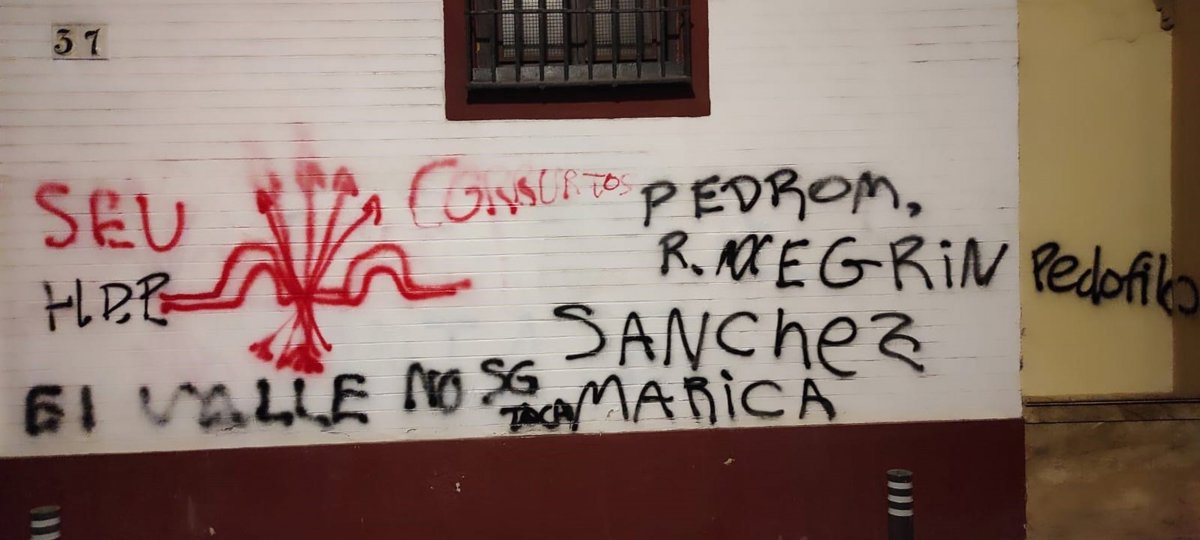 37
SEU
CONSURTOS
HDP
PEDROM,
R. NEGRiN
SANChez
MARiCA
Pedofilo
El VALLE NO SG
TOCA